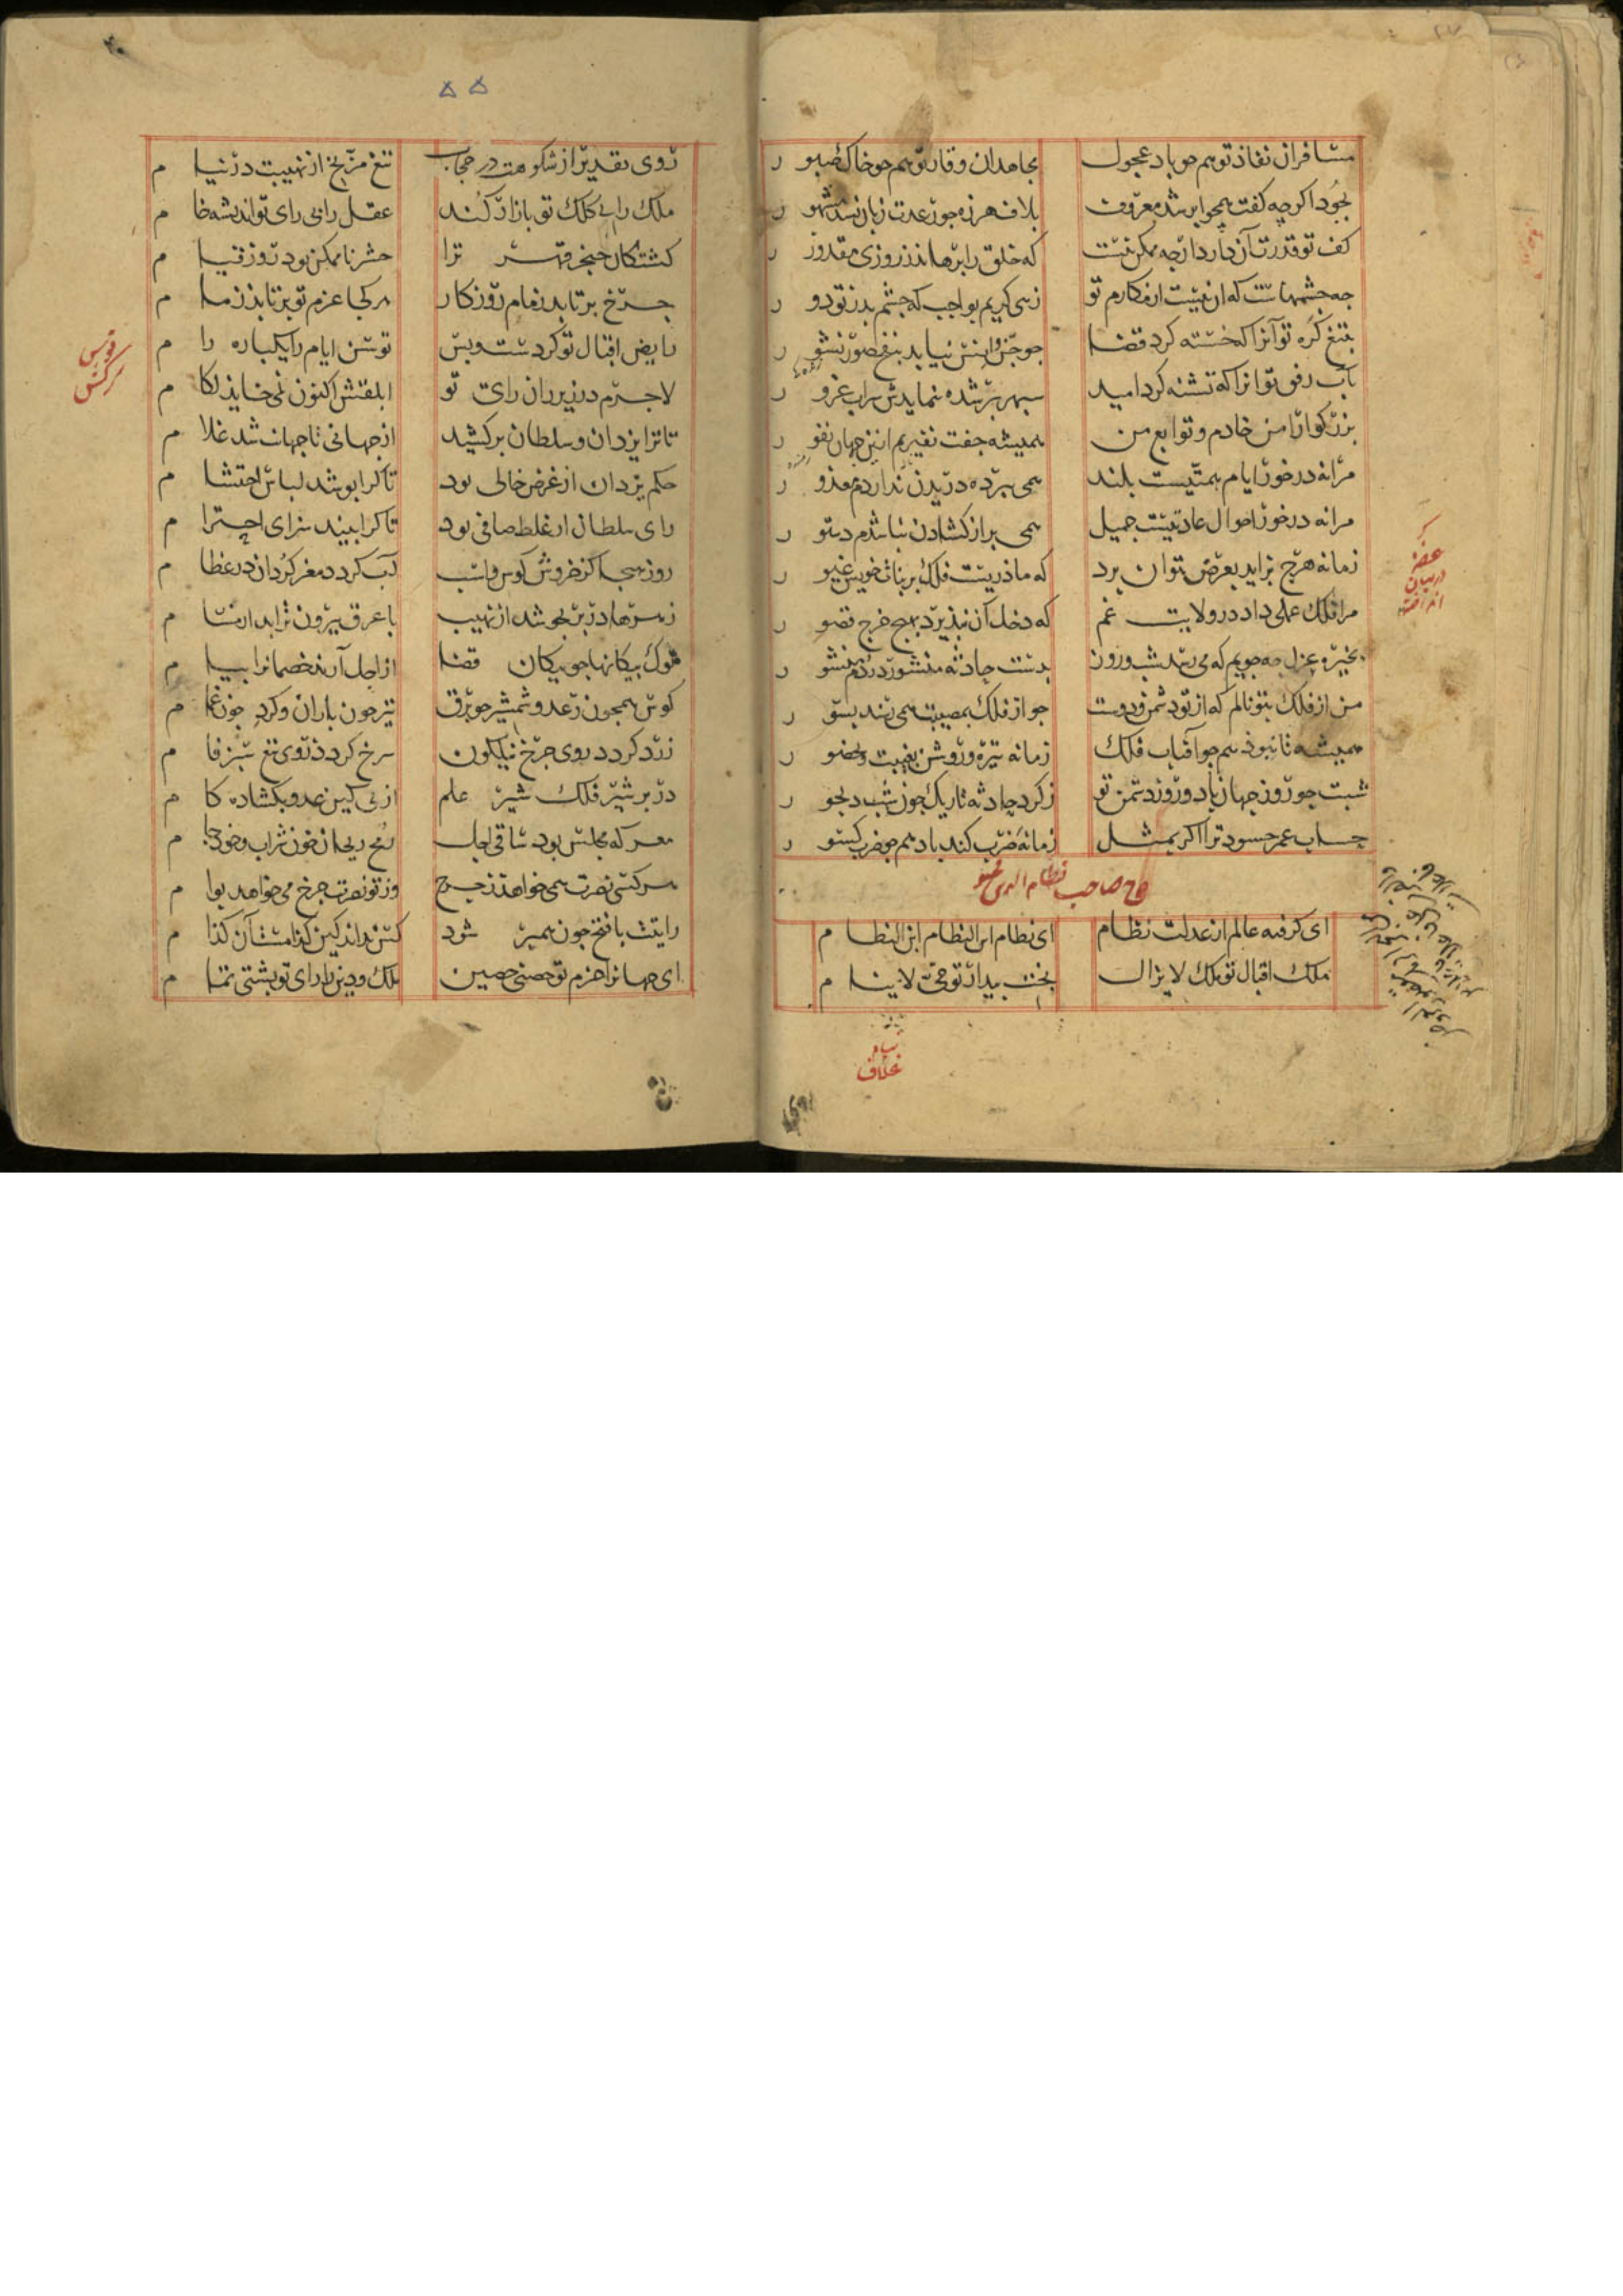 مسافران نفاذ تو هم جو باد عجول مجاهدان وقار تو هم جو خاک صبو ر
بجود اکرچه کفت همچو ابر شد معروف بلاف هرزه جو رعدت زبان نشد مشهو ر
کف تو قدرت آن دارد ارجه ممکن نیست که خلق را برهاند ز روزی مقدو ر
جه جشمهاست که آن نیست از مکارم تو زهی کریم بواجب که جشم بد ز تو دو ر
بتیغ کره تو آنرا که خسته کرد قضا جو جن وانس نیاید بنفخ صور نشو ر
بآب رفق تو انرا که تشنه کرد امید سپهر بر شده ننمایدش سراب غرو ر
بزرکوارا من خادم و توابع من همیشه جفت نفیریم ازین جهان نفو ر
مرا نه درخور ایام همتیست بلند همی برده دریدن نداردم معذو ر
مرا نه درخور احوال عادتیست جمیل همی براز کشادن نباشدم دستو ر
زمانه هرج بزاید بعرض نتوان برد که مادریست فلک بر بنات خویش غیو ر
مرا فلک عملی داد در ولایت غم که دخل آن نپذیرد بهیج خرج قصو ر
بخیره عزل جه جویم که می رسد شب و روز بدست حادثه منشور در دم منشو ر
من از فلک بتو نالم که از تو دشمن و دوست جو از فلک بمصیبت همی رسند بسو ر
همیشه تا نبود هم جو آفتاب فلک زمانه تیره و روشن بغیبت و حضو ر
شبت جو روز جهان باد و روز دشمن تو ز کرد حادثه تاریک جون شب دیجو ر
حساب عمر حسود ترا اکر بمثل زمانه ضرب کند باد هم جو ضرب کسو ر
مدح صاحب نظام الدین
ای کرفته عالم از عدلت نظام ای نظام ابن النظام ابن النظا م
ملک اقبال تو ملک لا یزال بخت بیدار تو حی لا ینا م
غلاف
روی تقدیر از شکوهت در حجاب تیغ مریخ از نهیبت در نیا م
ملک را بی کلک تو بازار کند عقل را بی رای تو اندیشه خا م
کشتکان خنجر قهر ترا حشر ناممکن بود روز قیا م
جرخ برتابد زمام روزکار هر کجا عزم تو برتابد زما م
رایض اقبال تو کردست و بس توسن ایام را یکباره را م
لاجرم در زیر ران رای تو ابلقش اکنون نمی خاید لکا م
تا ترا یزدان و سلطان برکشید از جهانی تا جهان شد غلا م
حکم یزدان از غرض خالی بود تا کرا پوشد لباس احتشا م
رای سلطان از غلط صافی بود تا کرا بیند سزای احترا م
روز هیجا کز خروش کوس و اسب آب کردد مغز کردان در عظا م
زهرها در بر بجوشد از نهیب با عرق بیرون تراید از مسا م
نوک پیکانها جو پیکان قضا از اجل آرند خصمانرا پیا م
کوس همجون رعد و شمشیر جو برق تیر جون باران و کرد جون غما م
زرد کردد روی جرخ نیلکون سرخ کردد روی تیغ سبز فا م
در بر شیر فلک شیر علم از پی کین عدو بکشاده کا م
معرکه مجلس بود ساقی اجل رمح ریحان خون شراب و خود جا م
هر کسی نصرت همی خواهد ز جرخ وز تو نصرت جرخ می خواهد بوا م
رایتت با فتح جون همبر شود کس نداند کین کدامست آن کدا م
ای جهانرا حزم تو حصنی حصین ملک و دین را رای تو پشتی تما م